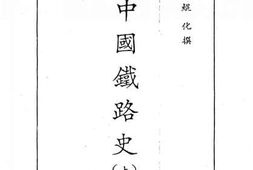 鯤化撰
中國鐵路史(上)